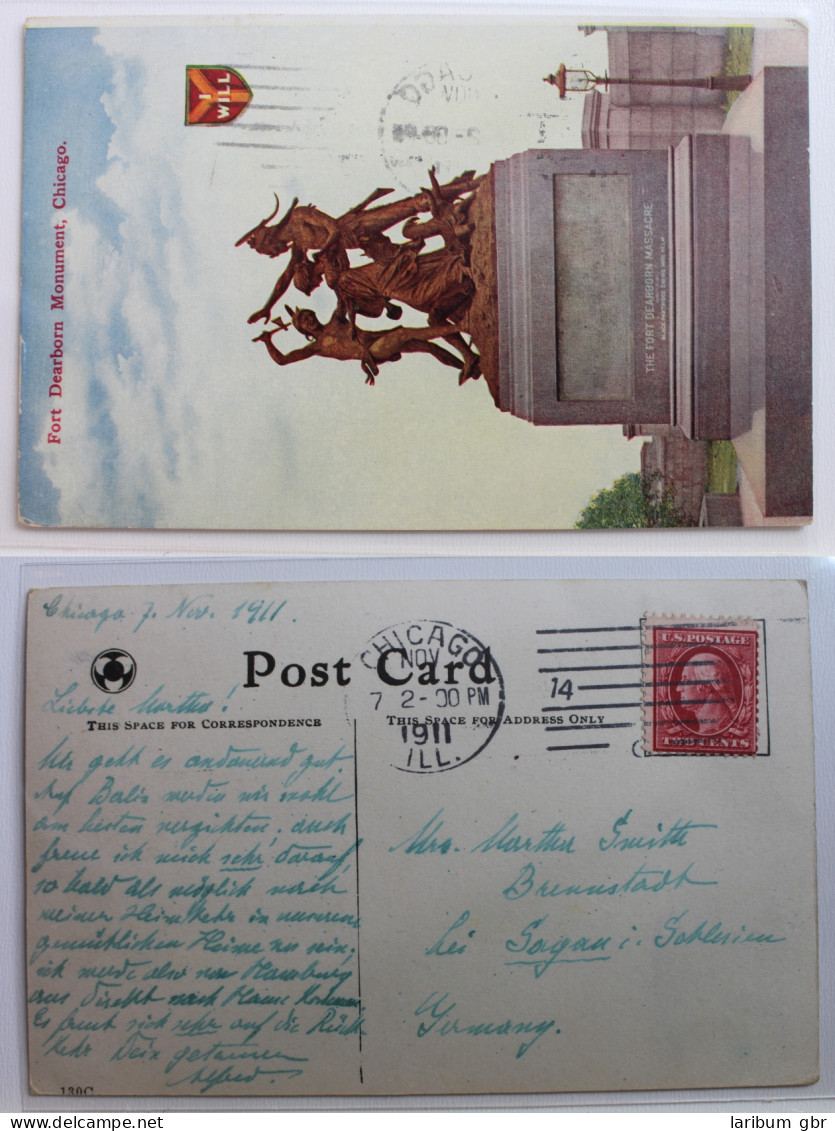 Fort Dearborn Monument, Chicago.
I
WILL
THE FORT DEARBORN MASSACRE
Chicago 7. Nov. 1911.
Post Card
CHICAGO
NOV
7 2-00 PM
1911
ILL.
14
U.S. POSTAGE
TWO CENTS
Liebste Martha!
THIS SPACE FOR CORRESPONDENCE
THIS SPACE FOR ADDRESS ONLY
Mir geht es andauernd gut.
Auf Berlin werden wir wohl
am besten verzichten, auch
freue ich mich sehr darauf,
so bald als möglich nach
meiner Heimkehr in unserem
gemütlichen Heime zu sein;
ich werde also von Hamburg
aus direkt nach Hause kommen
Es freut sich sehr auf die Rück
kehr Dein getreuer
Alfred.
Mrs. Martha Smith
Brennstadt
bei Sagan i. Schlesien
Germany.
130C
laribum gbr